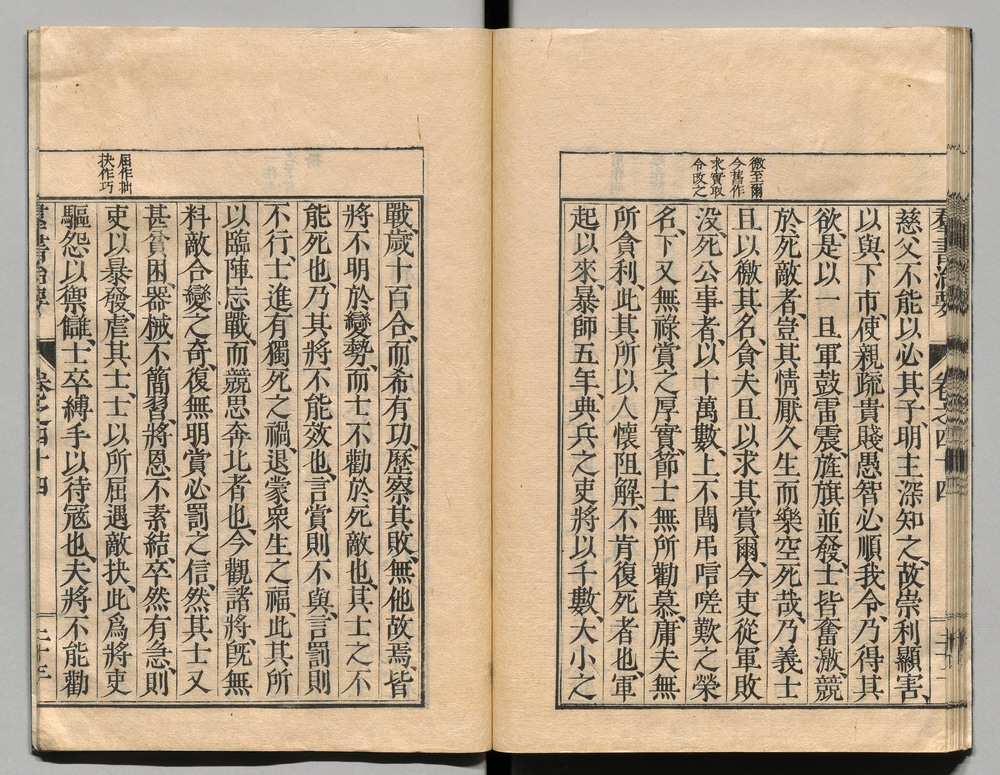 慈父不能以必其子、明主深知之、故崇利顯害、
以與下市、使親疏貴賤愚智必順我令、乃得其
欲、是以一旦軍鼓雷震、旌旗並發、士皆奮激、競
於死敵者、豈其情厭久生而樂空死哉、乃義士
且以徼其名、貪夫且以求其賞爾、今吏從軍敗
没、死公事者、以十萬數、上不聞弔唁嗟歎之榮
名、下又無祿賞之厚實、節士無所勸慕、庸夫無
所貪利、此其所以人懷阻解、不肯復死者也、軍
起以來、暴師五年、典兵之吏、將以千數、大小之
徼至爾
今舊作
求實取
令改之
群書治要
卷之四十四
戰、歲十百合、而希有功、歷察其敗、無他故焉、皆
將不明於變勢、而士不勸於死敵也、其士之不
能死也、乃其將不能效也、言賞則不與、言罰則
不行、士進有獨死之禍、退蒙衆生之福、此其所
以臨陣忘戰、而競思奔北者也、今觀諸將、既無
料敵合變之奇、復無明賞必罰之信、然其士又
甚貧困、器械不簡習、將恩不素結、卒然有急、則
吏以暴發、虐其士、士以所屈遇敵抉、此爲將吏
驅怨以禦讎、士卒縛手以待寇也、夫將不能勸
屈作拙
抉作巧
群書治要
卷之四十四
二十三